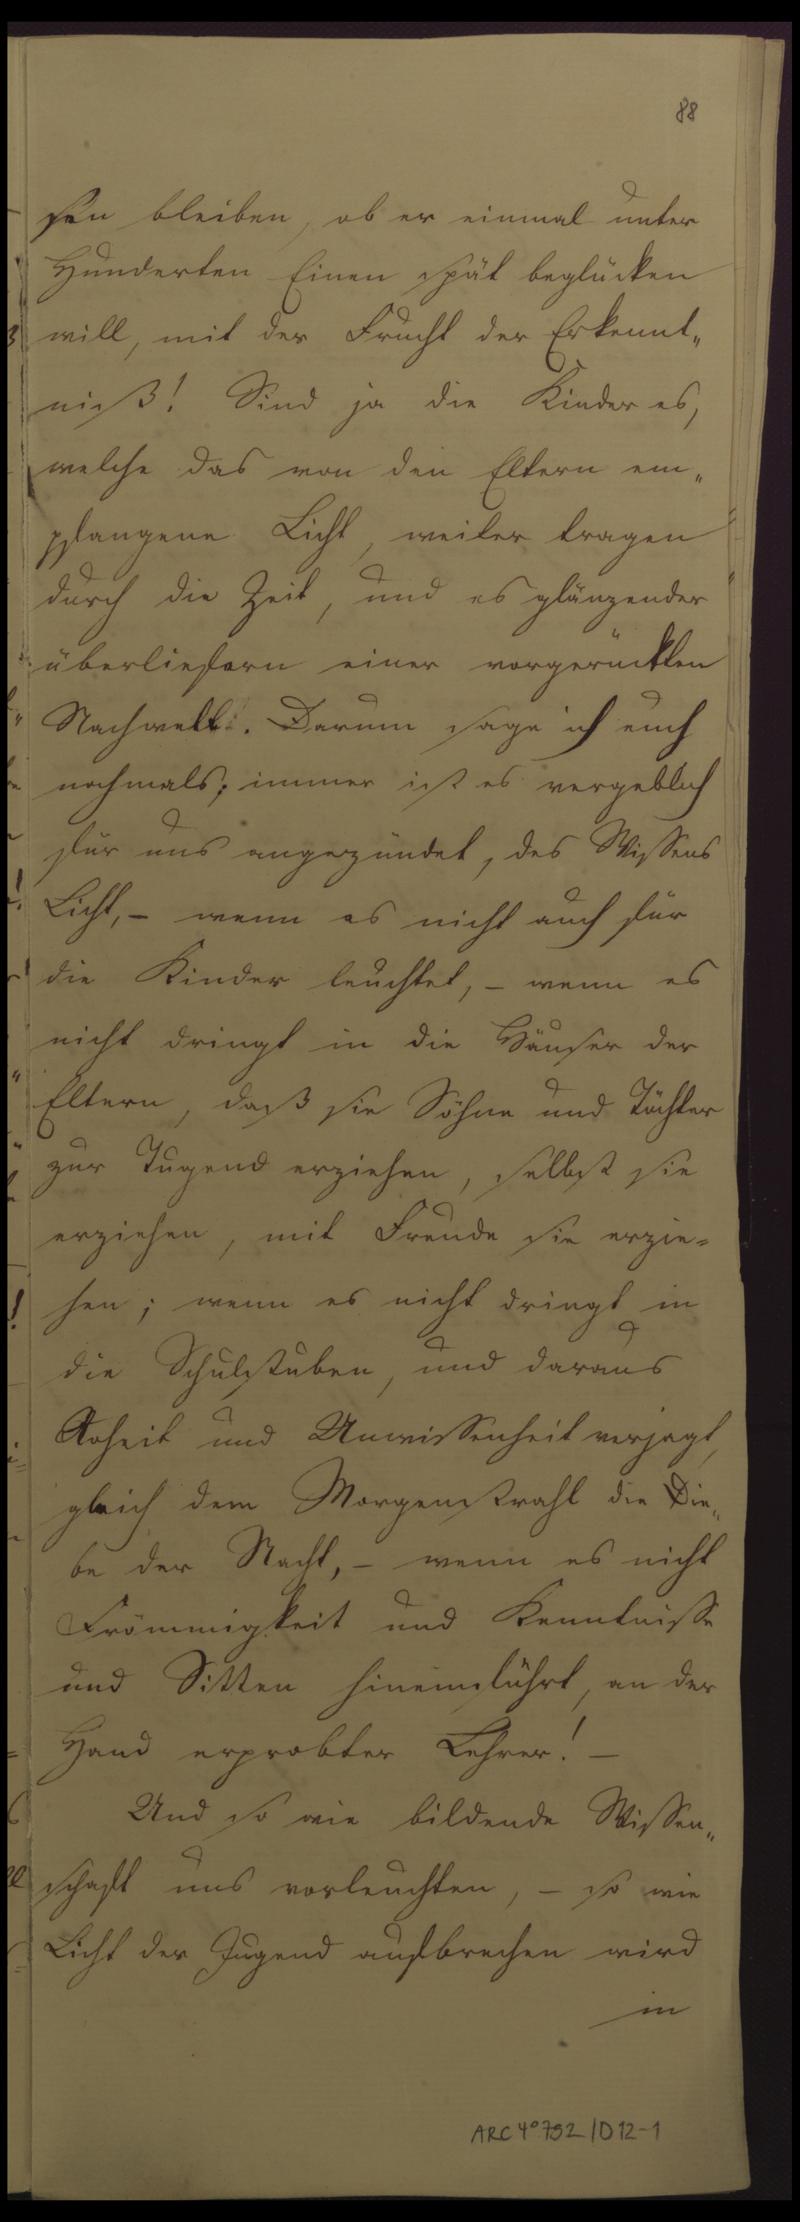 88
sen bleiben, ob er einmal unter
Hunderten Einen spät beglücken
will, mit der Frucht der Erkennt„
niß! Sind ja die Kinder es,
welche das von den Eltern em„
pfangene Licht, weiter tragen
durch die Zeit, und es glänzender
überliefern einer vorgerückten
Nachwelt. Darum sage ich euch
nochmals; immer ist es vergeblich
für uns angezündet, des Wissens
Licht, – wenn es nicht auch für
die Kinder leuchtet, – wenn es
nicht dringt in die Häuser der
Eltern, daß sie Söhne und Töchter
zur Tugend erziehen, selbst sie
erziehen, mit Freude sie erzie=
hen; wenn es nicht dringt in
die Schulstuben, und daraus
Roheit und Unwissenheit verjagt,
gleich dem Morgenstrahl die Die„
be der Nacht, – wenn es nicht
Frömmigkeit und Kenntnisse
und Sitten hineinführt, an der
Hand erprobter Lehrer! –
Und so wie bildende Wissen„
schaft uns vorleuchten, – so wie
Licht der Jugend aufbrechen wird
in
ARC 4° 792/D12-1